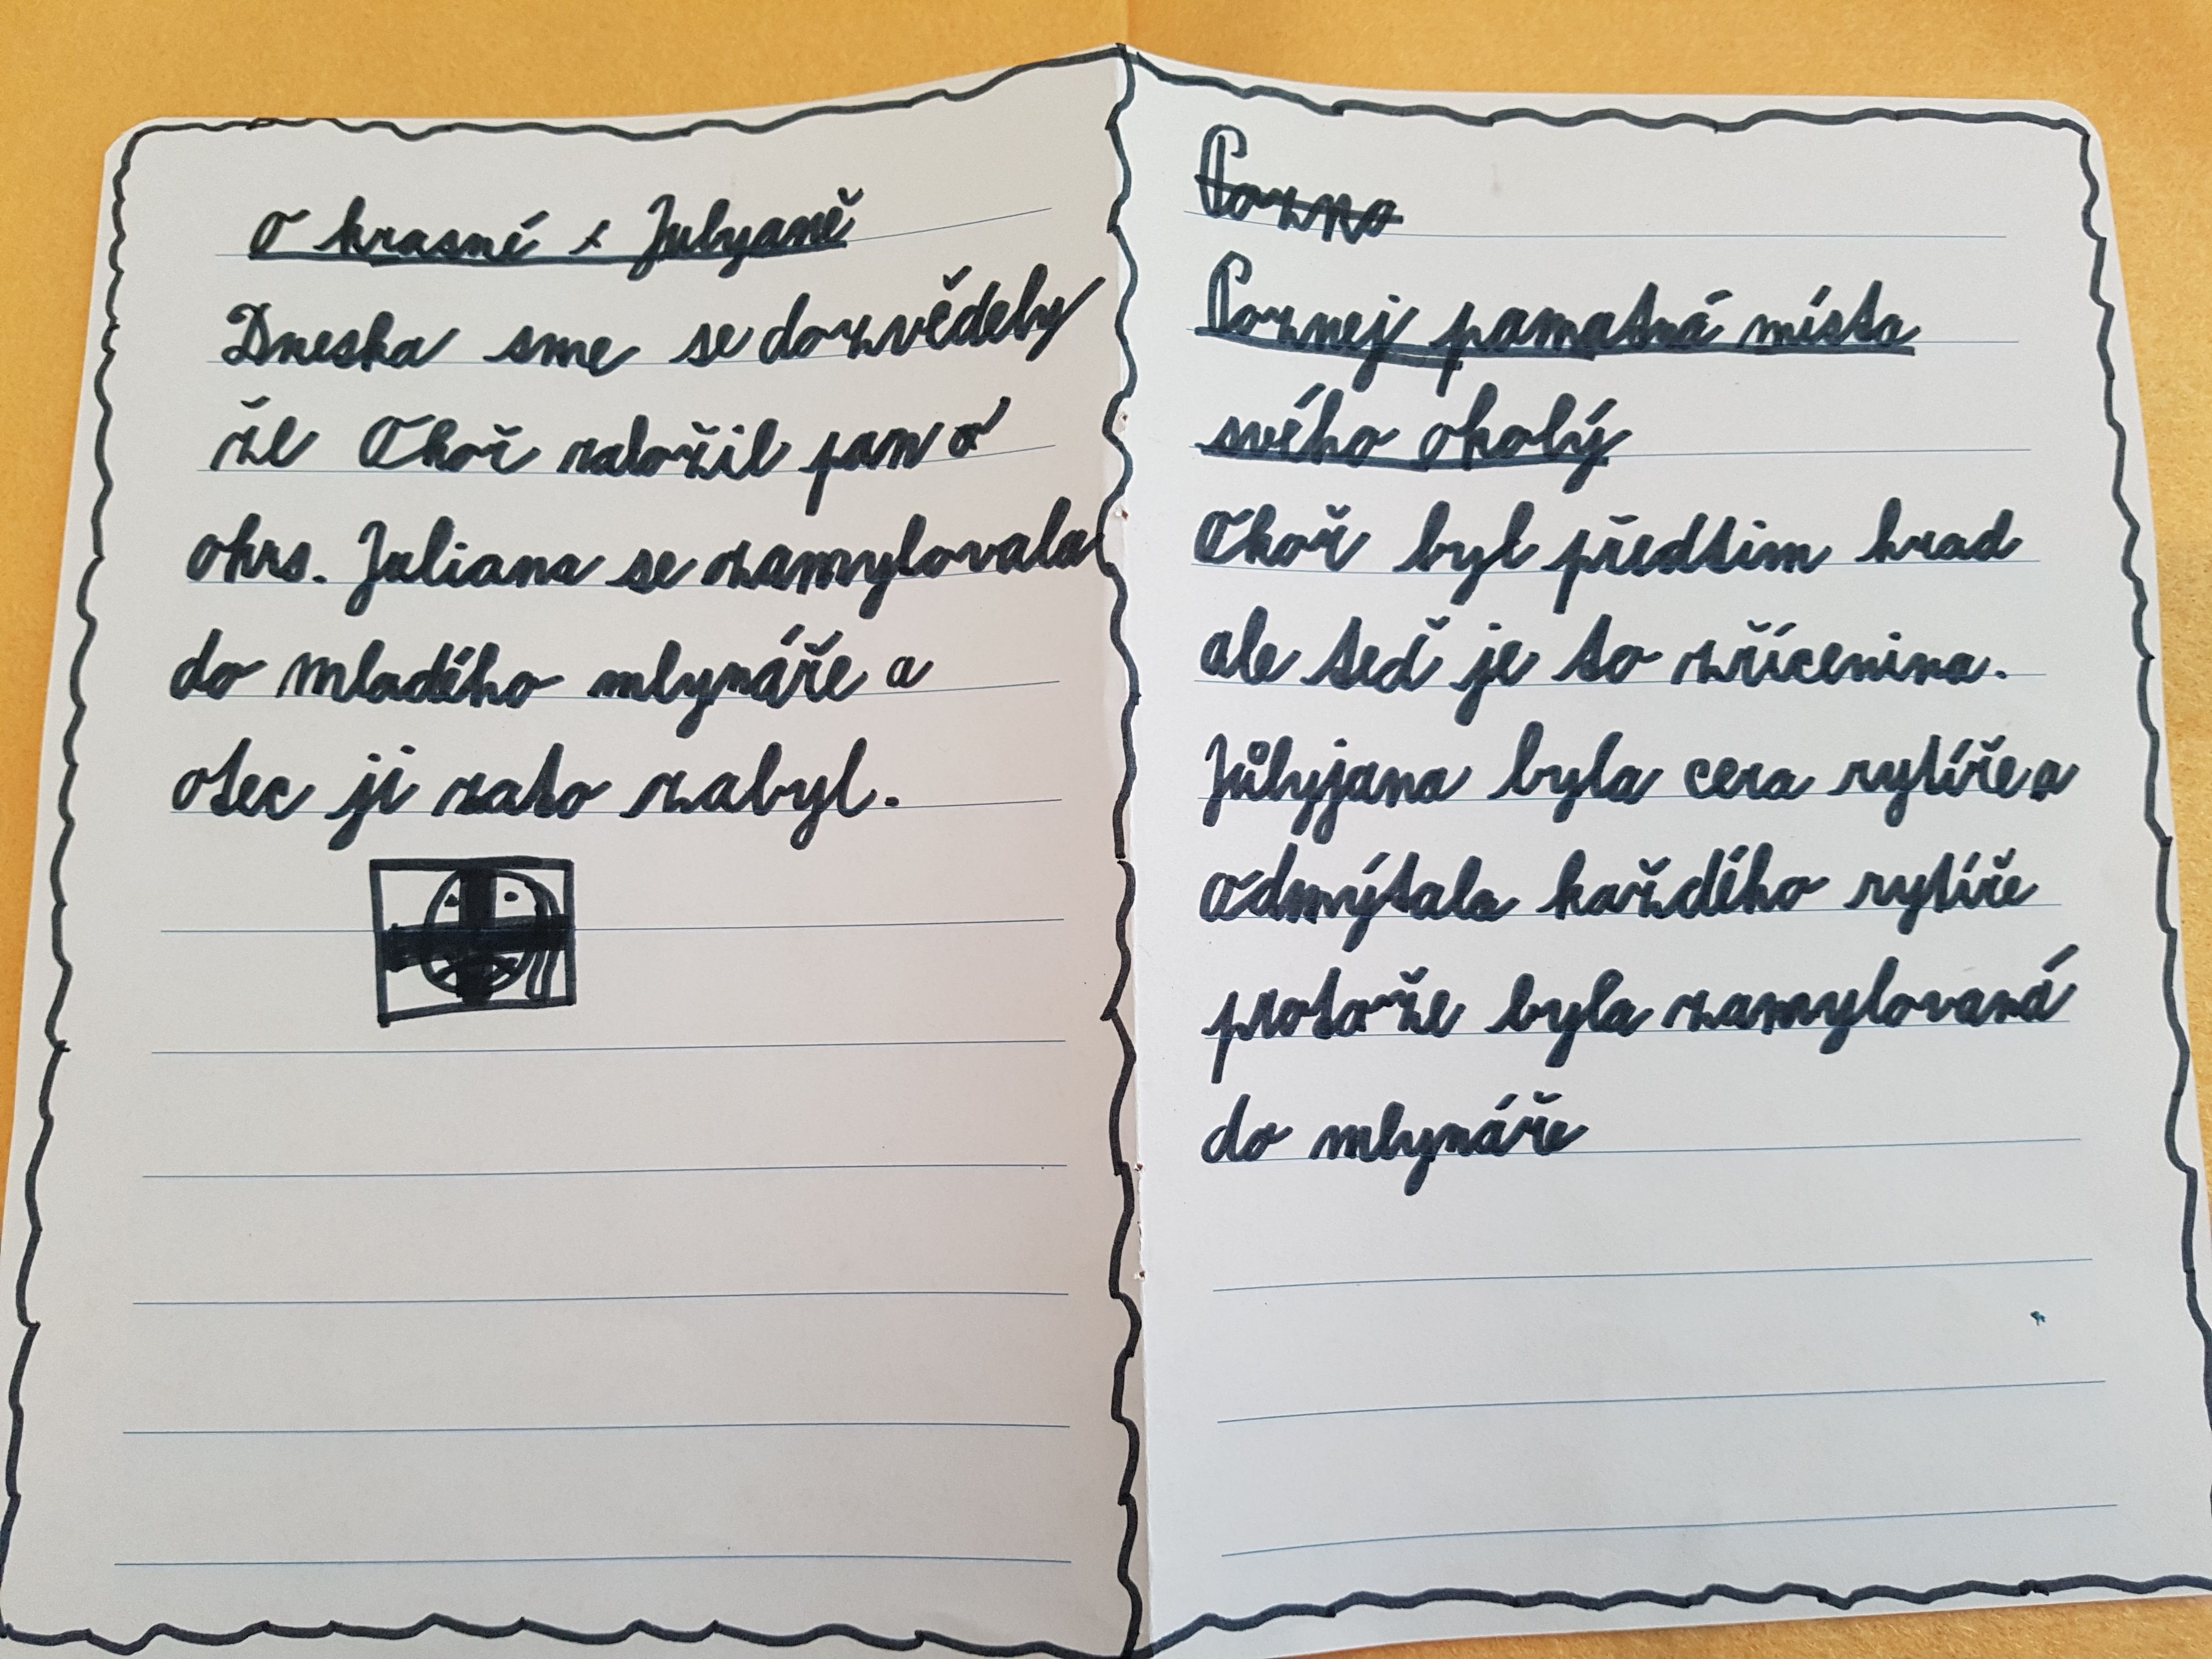 O krasné x Julyaně
Dneska sme se dozvěděly
že Okoř založil pan z
okrs. Juliana se zamylovala
do mladího mlynáře a
otec ji zato zabyl.
Pozno
Poznej pamatná místa
svého okolý
Okoř byl předtim hrad
ale teď je to zřícenina.
Jůlyjana byla cera rytíře a
odmýtala každího rytíře
protože byla zamylovaná
do mlynáře